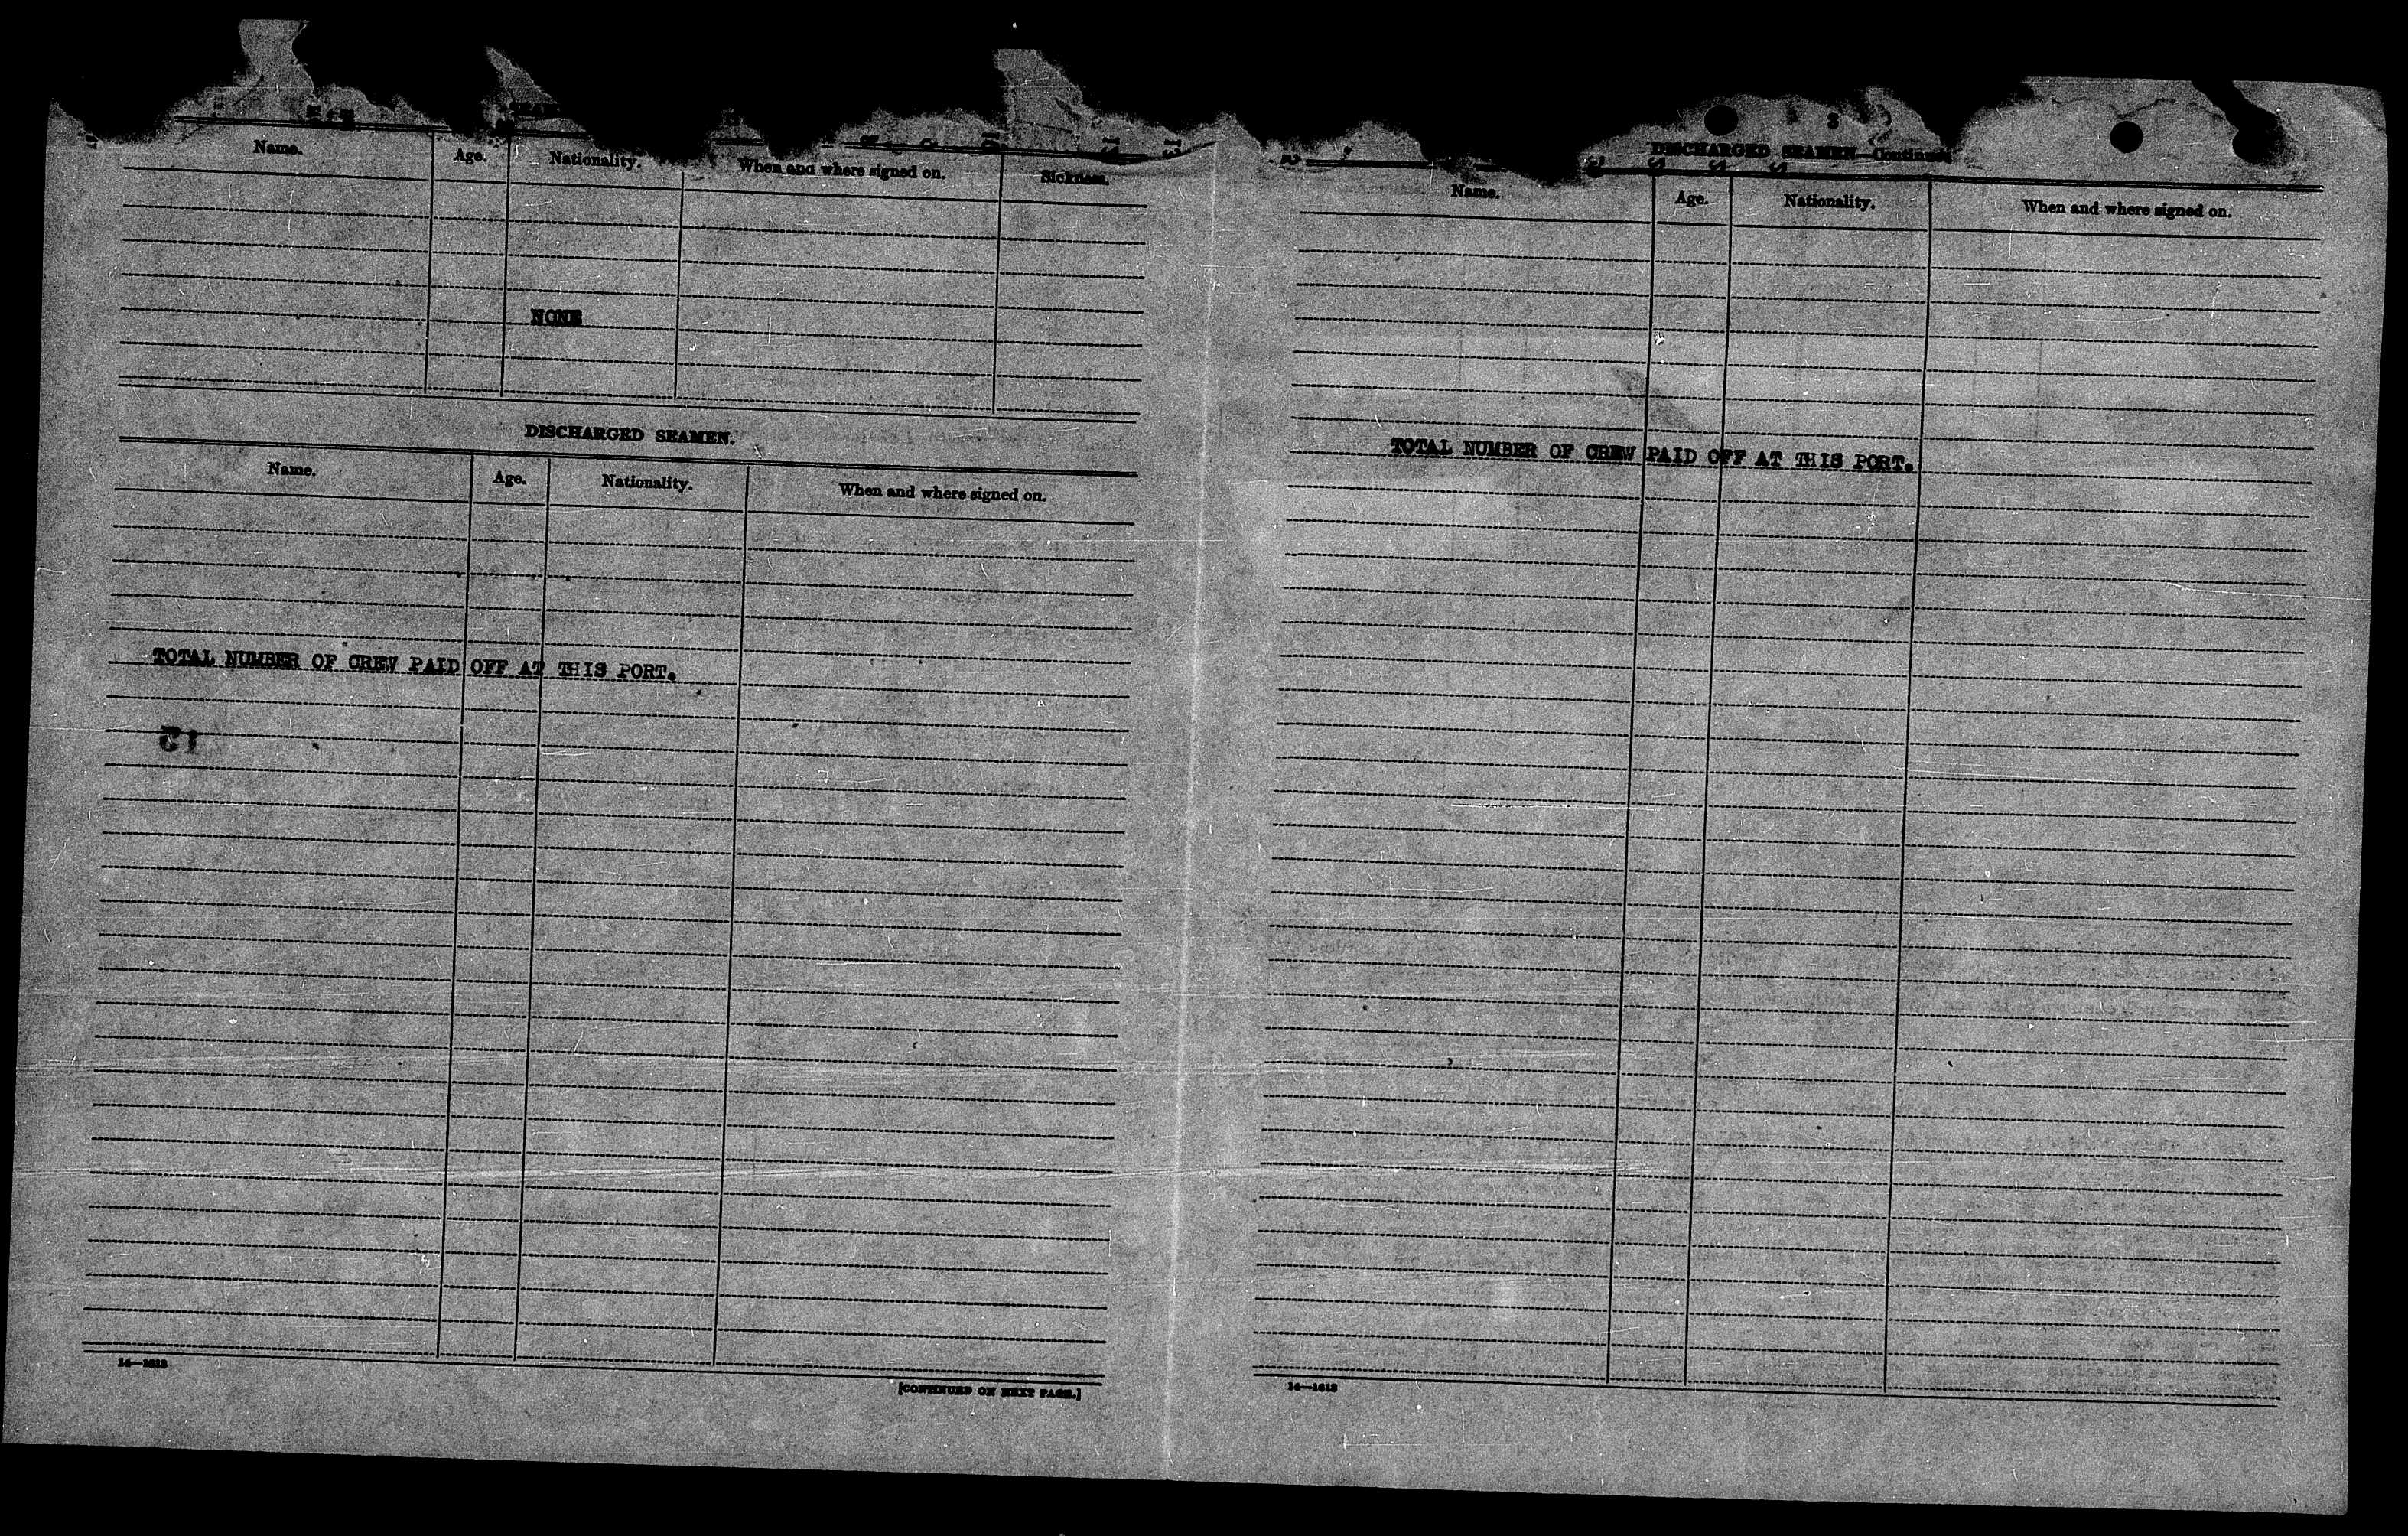 Name. Age. Nationality. When and where signed on. Sickness.
NONE
DISCHARGED SEAMEN.
Name. Age. Nationality. When and where signed on.
TOTAL NUMBER OF CREW PAID OFF AT THIS PORT.
14—1613
[CONTINUED ON NEXT PAGE.]
DISCHARGED SEAMEN—Continued
Name. Age. Nationality. When and where signed on.
TOTAL NUMBER OF CREW PAID OFF AT THIS PORT.
14—1613